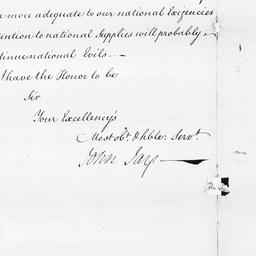 more adequate to our national Exigencies
ention to national Supplies will probably
tinue national Evils. —
I have the Honor to be
Sir
Your Excellency's
Most obt. & hble. Servt.
John Jay